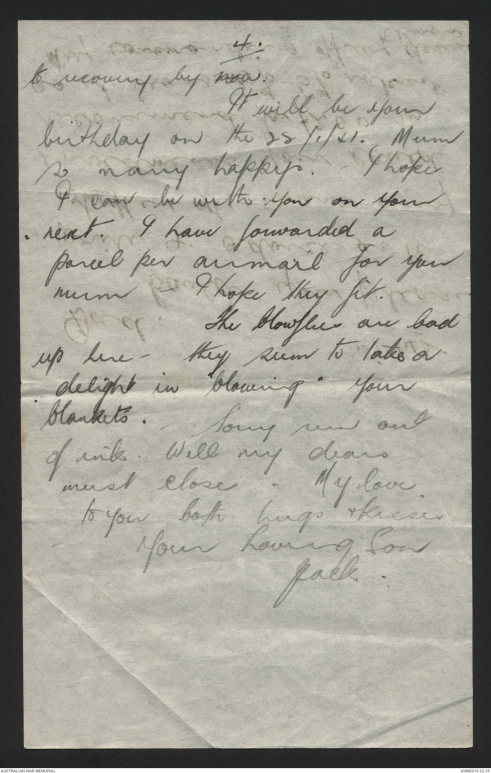 4.
to recovery by now.
It will be your
birthday on the 28/1/41. Mum
so many happys. I hope
I can be with you on your
next. I have forwarded a
parcel per airmail for you
mum I hope they fit.
The blowflies are bad
up here - they seem to take a
delight in "blowing" your
blankets. - Sorry run out
of ink. Well my dears
must close. My love
to you both hugs & kisses
Your Loving Son
Jack.
AUSTRALIAN WAR MEMORIAL